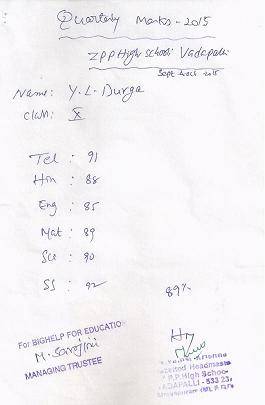 Quarterly Marks - 2015
ZPP High School Vadapalli
Sept 2015
Name: Y. L. Durga
Class: X
Tel : 91
Hin : 88
Eng : 85
Mat : 89
Sce : 90
SS : 92
89%
For BIGHELP FOR EDUCATION
M. Sarojini
MANAGING TRUSTEE
Gazetted Headmaste
Z.P.P. High School
VADAPALLI - 533 23